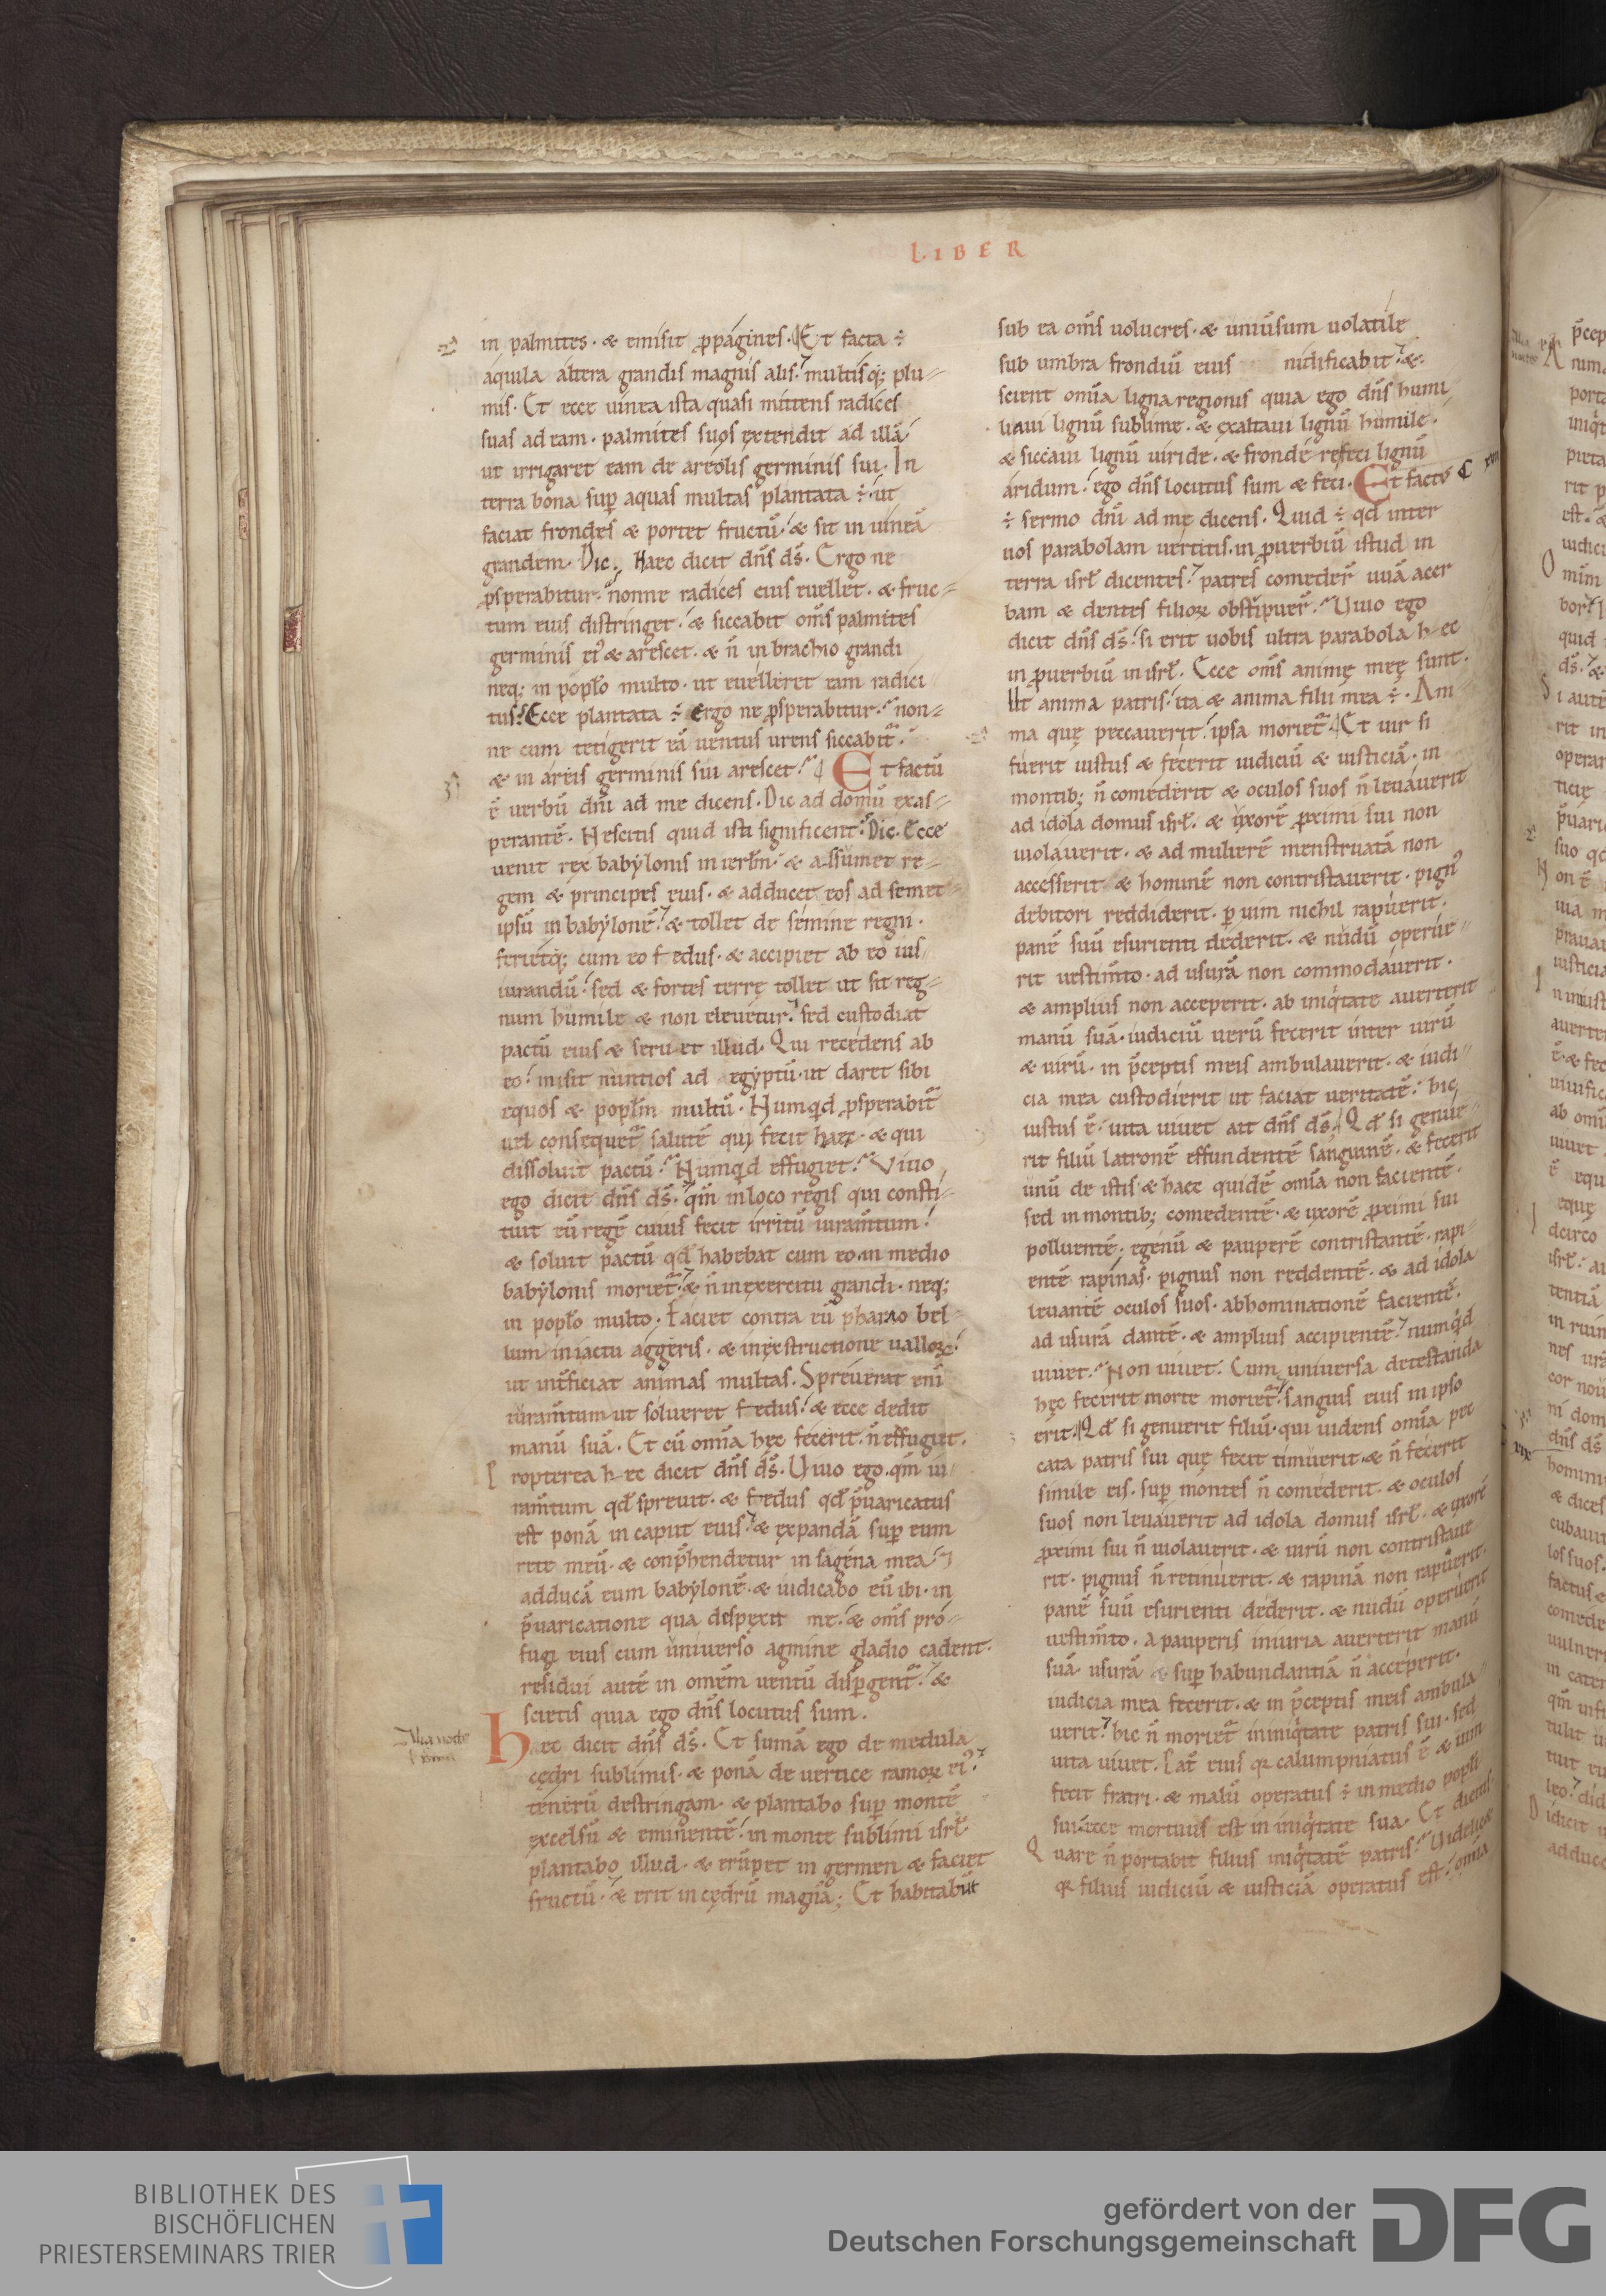 LIBER
in palmites· & emisit ꝓpágines· Et facta ÷
áquila áltera grandis magnis alis: multísq; plu-
mis· Et ecce uinea ista quasi mittens radíces
suas ad eam· palmites suos ęxtendit ad illā
ut irrigaret eam de areólis germinis sui· In
terra bóna suꝑ aquas multas plantata ÷ ut
faciat frondes & portet fructū· & sit in uíneā
grandem· Dic· Haec dicit dn̄s ds̄· Ergo ne
ꝓsperabitur· nonne radíces eius euellet· & fruc-
tum eius distringet· & siccabit om̄s palmites
germinis ei⁹ & aréscet· & n̄ in brachio grandi
neq; in popl̄o multo· ut euélleret eam radici
tus? Ecce plantata ÷ Ergo ne ꝓsperabitur· non-
ne cum tetigerit eā uéntus urens siccabit̄·
& in áreis germinis sui arescet· Et factū
ē verbū dn̄i ad me dicens· Dic ad domū exas-
perantē· Nescitis quid ista significent· Dic· Ecce
uenit rex babẏlonis in ierlm̄· & assúmet re-
gem & príncipes eius· & adducet eos ad semet-
ipsū in babẏlonē· & tollet de sémine regni·
ferietq; cum eo fedus· & accipiet ab eo ius
iurandū· sed & fortes terrę tollet ut sit reg-
num húmile & non eleuétur· sed custodiat
pactū eius & seruet illud· Qui recédens ab
eo· misit núntios ad egẏptū· ut daret sibi
equos & popl̄m multū· Numqd ꝓsperabit̄
uel consequet̄ salutē qui fecit haec· & qui
dissoluit pactū· Numqd effugiet· Viuo
ego dicit dn̄s ds̄· qm̄ in loco regis qui consti-
tuit eū regē cuius fecit írritū iuram̄tum·
& soluit pactū qd̄ habebat cum eo· in medio
babẏlonis moriet̄· & n̄ in exercitu grandi· neq;
in popl̄o multo· Faciet contra eū pharao bel-
lum in iactu aggeris· & in exstructione uallorꝝ·
ut int̄ficiat animas multas· Spréuerat eni
iuram̄tum ut solueret fedus· & ecce dedit
manū suā· Et cū om̄ia hęc fécerit· n̄ effugiet·
Propterea hec dicit dn̄s ds̄· Uiuo ego· qm̄ iu
ram̄tum qd̄ spreuit· & fedus qd̄ p̄uaricatus
est ponā in caput eius· & expandā suꝑ eum
rete meū· & conp̄hendetur in sagéna mea· &
adducā eum babẏlonē· & iudicabo eū ibi· in
p̄uaricatione qua despexit me· & om̄s pró-
fugi eius cum uniuerso agmine gladio cadent·
resídui autē in omēm uentū disꝑgent̄· &
scietis quia ego dn̄s locutus sum·
Hec dicit dn̄s ds̄· Et sumā ego de medula
cędri sublimis· & ponā de uértice ramorꝝ ei⁹·
ténerū destringam· & plantabo suꝑ montē
excelsū & eminentē· in monte sublími isrl̄·
plantabo illud· & erūpet in germen & faciet
fructū· & erit in cędrū magnā; Et habitabūt
sub ea om̄s uolucres· & uniūsum uolatíle
sub umbra frondiū eius nidificabit· &
scient om̄ia ligna regionis quia ego dn̄s humi-
liaui lignū sublíme· & exaltaui lignū húmile·
& siccaui lignū uiride· & frondé reféci lignū
áridum· ego dn̄s locutus sum & feci· Et factū
÷ sermo dn̄i ad me dicens· Quid ÷ qd inter
uos parabolam uértitis· in ꝓuerbiū istud in
terra isrl̄ dicentes· patres comeder̄ uuā acer
bam & dentes filiorꝝ obstipuer̄· Uiuo ego
dicit dn̄s ds̄· si erit uobis ultra parabola hec
in ꝓuerbiū in isrl̄· Ecce om̄s animę meę sunt·
Ut anima patris· ita & anima filii mea ÷· Ani-
ma quę peccauerit· ipsa moriet̄· Et uir si
fúerit iustus & fécerit iudiciū & iusticiā· in
montib; n̄ coméderit & oculos suos n̄ leuáuerit
ad idóla domus isrl̄· & uxorē ꝓximi sui non
uiolauerit· & ad muliérē menstruatā non
accesserit· & hominē non contristauerit· pign⁹
debitori reddiderit· ꝑ uim nichil rapúerit·
panē suū esurienti dederit· & nudū operúe-
rit uestim̄to· ad usurā non commodáuerit·
& amplius non acceperit· ab iniq̇tate auerterit
manū suā· iudiciū uerū fecerit inter uirū
& uirū· in p̄ceptis meis ambulauerit· & iudi-
cia mea custodíerit ut faciat ueritatē· hic
iustus ē· uita uiuet ait dn̄s ds̄· Qd̄ si genúe-
rit filiū latronē effundentē sánguinē· & fecerit
unū de istis & haec quidē om̄ia non facientē·
sed in montib; comedentē· & uxorē ꝓximi sui
polluentē· egénū & pauperē contristantē· rapi-
entē rapínas· pignus non reddentē· & ad idóla
leuantē oculos suos· abhominationē facientē·
ad usurā dantē· & amplius accipientē· numq̇d
uiuet· Non uiuet· Cum uniuersa detestanda
hęc fécerit morte moriet̄· sanguis eius in ipso
érit· Qd̄ si genuerit filiū· qui uidens om̄ia pec
cata patris sui quę fecit timúerit· & n̄ fécerit
simile eis· suꝑ montes n̄ coméderit· & oculos
suos non leuáuerit ad idola domus isrl̄· & uxorē
ꝓximi sui n̄ uiolauerit· & uirū non contristaue
rit· pignus n̄ retinúerit· & rapinā non rapúerit·
panē suū esurienti déderit· & nudū operúerit
uestim̄to· a pauperis iniuria auerterit manū
suā· usurā & suꝑ habundantiā n̄ accéperit·
iudicia mea fecerit· & in p̄ceptis meis ambula
uerit· hic n̄ moriet̄ in iniq̇tate patris sui· sed
uita uiuet· Pat̄ eius qꝛ calumpniatus ē & uim
fecit fratri· & malū operatus ÷ in medio popl̄i
sui· ecce mortuus est in iniq̇tate sua· Et dicitis·
Quare n̄ portabit filius iniq̇tatē patris· Uidelicet
qꝛ filius iudiciū & iusticiā operatus est· om̄ia
BIBLIOTHEK DES
BISCHÖFLICHEN
PRIESTERSEMINARS TRIER
gefördert von der
Deutschen Forschungsgemeinschaft
DFG